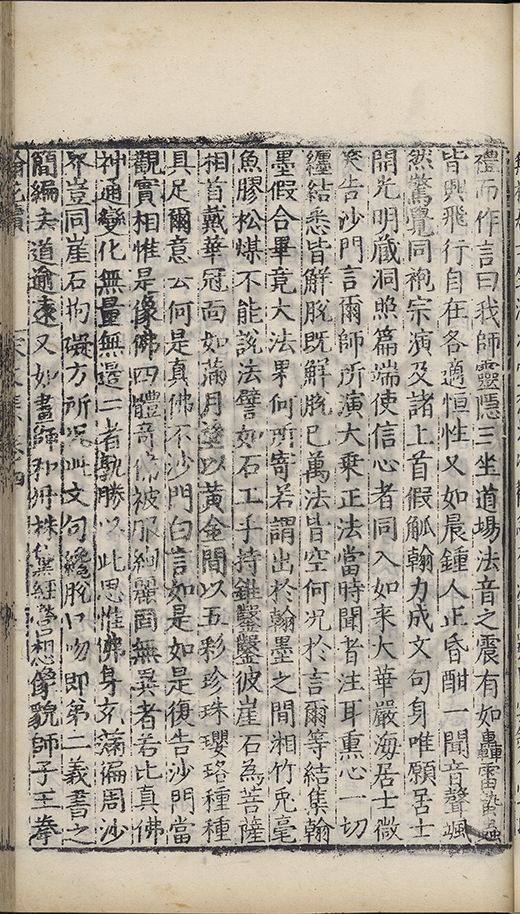 禮而作言曰我師靈隱三坐道場法音之震有如轟雷蟄蟲
皆興飛行自在各適恒性又如晨鍾人正昏酣一聞音聲颯
然驚覺同袍宗演及諸上首假觚翰力成文句身唯願居士
開光明藏洞照篇端使信心者同入如来大華嚴海居士微
笑告沙門言爾師所演大乗正法當時聞者注耳熏心一切
纏結悉皆解脫既解脫已萬法皆空何况於言爾等結集翰
墨假合畢竟大法果何所寄若謂出於翰墨之間湘竹兎毫
魚膠松煤不能說法譬如石工手持錐鑿鑿彼崖石為菩薩
相首戴華冠面如滿月塗以黃金間以五彩珍珠瓔珞種種
具足爾意云何是真佛不沙門白言如是如是復告沙門當
觀實相惟是像佛四體奇偉被服絢麗固無異者若比真佛
神通變化無量無邊二者孰勝以此思惟佛身充滿徧周沙
界豈同崖石拘礙方所况此文句纔脫口吻即第二義書之
簡編去道逾遠又如畫師和丹抹黛經營想像貌師子王拳